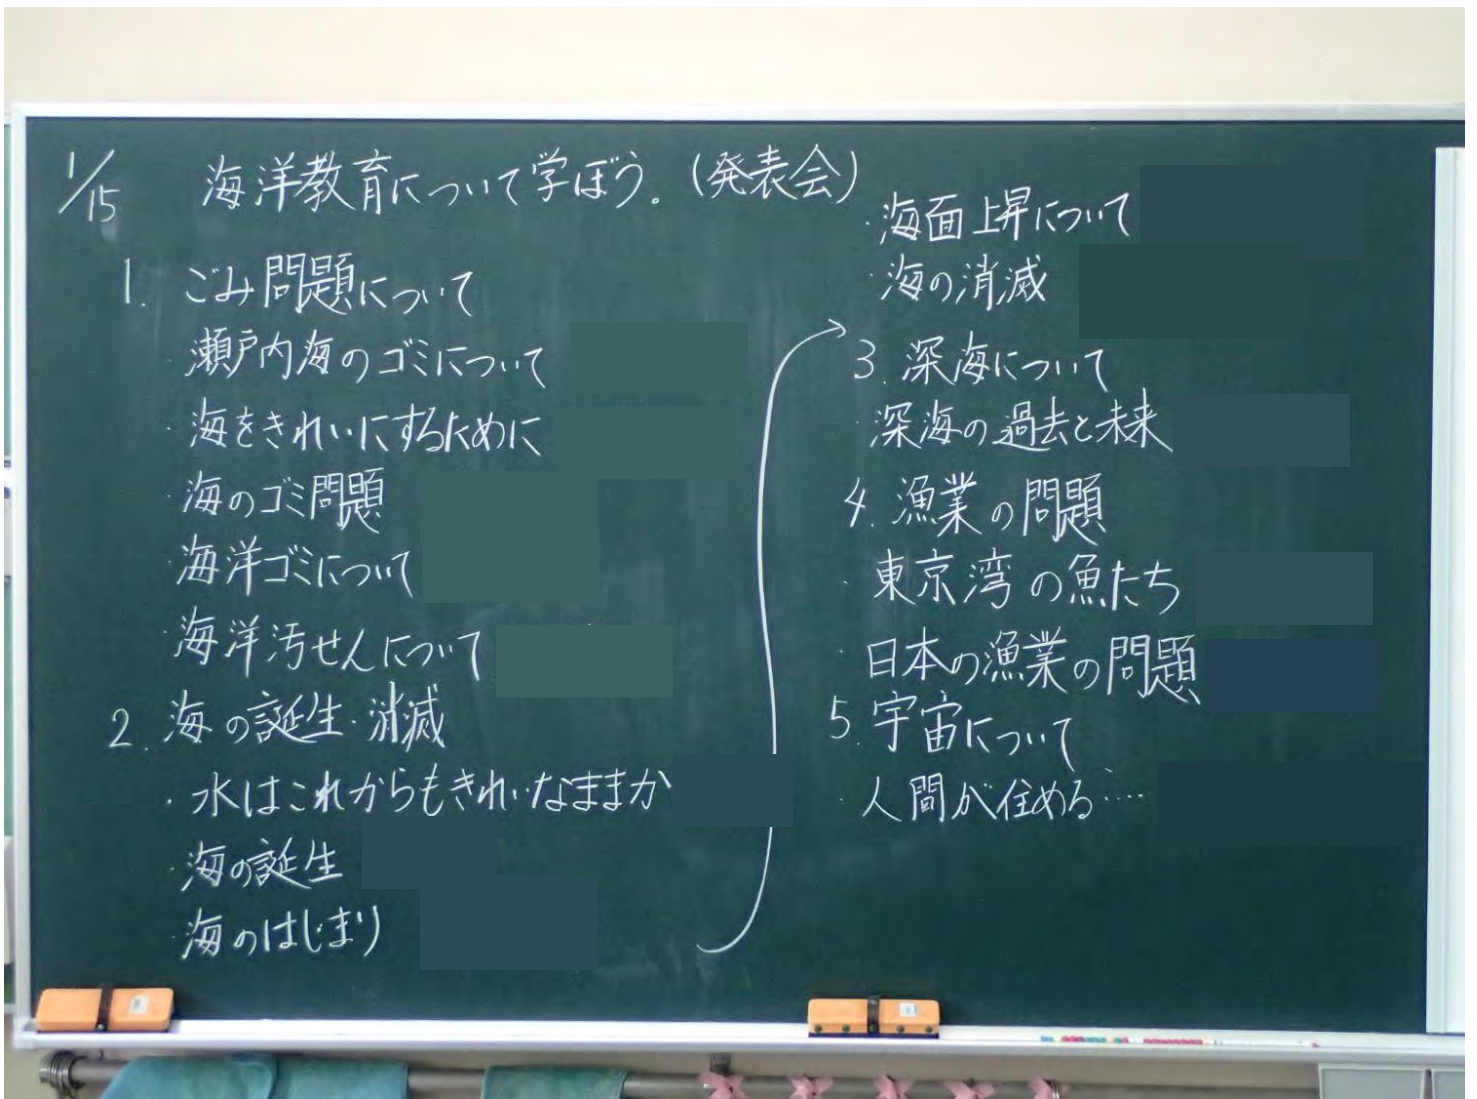 1/15 海洋教育について学ぼう。(発表会)
1. ごみ問題について
・瀬戸内海のゴミについて
・海をきれいにするために
・海のゴミ問題
・海洋ゴミについて
・海洋汚せんについて
2. 海の誕生・消滅
・水はこれからもきれいなままか
・海の誕生
・海のはじまり
・海面上昇について
・海の消滅
3. 深海について
・深海の過去と未来
4. 漁業の問題
・東京湾の魚たち
・日本の漁業の問題
5. 宇宙について
・人間が住める….